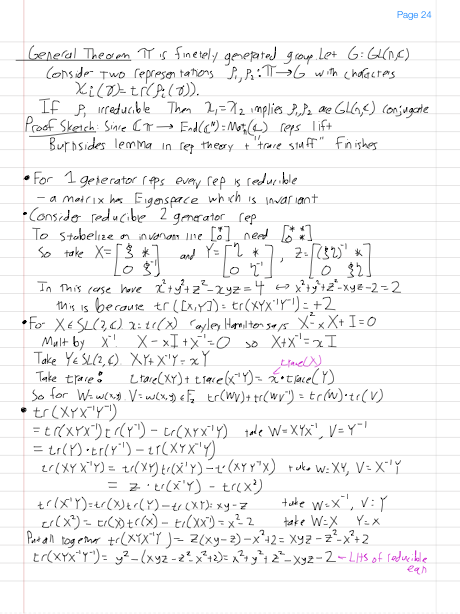 Page 24
General Theorem π is finetely generated group Let G = GL(n,ℂ)
Consider two representations ρ₁,ρ₂: π→G with characters
χᵢ(γ) = tr(ρᵢ(γ)).
If ρ₁ irreducible Then χ₁=χ₂ implies ρ₁,ρ₂ are GL(n,ℂ) conjugate
Proof Sketch: Since ℂπ → End(ℂⁿ)=Matₙ(ℂ) reps lift
Burnsides lemma in rep theory + "trace stuff" finishes
• For 1 generator reps every rep is reducible
- a matrix has Eigenspace which is invariant
• Consider reducible 2 generator rep
To stabelize an invariant line [* 0], need [* * 0 *]
So take X = [ξ * 0 ξ⁻¹] and Y = [η * 0 η⁻¹], Z = [(ξη)⁻¹ * 0 ξη]
In this case have x²+y²+z²-xyz=4 ↔ x²+y²+z²-xyz-2=2
this is because tr([X,Y]) = tr(XYX⁻¹Y⁻¹) = +2
• For X∈SL(2,ℂ) x = tr(X) Cayley Hamilton says X²-xX+I=0
Mult by X⁻¹ X-xI+X⁻¹=0 so X+X⁻¹=xI
Take Y∈SL(2,ℂ). XY+X⁻¹Y=xY
trace(X)
Take trace: trace(XY)+trace(X⁻¹Y) = x•trace(Y)
So for W=w(x,y) V=w(x,y)∈F₂ tr(WV)+tr(WV⁻¹) = tr(W)·tr(V)
• tr(XYX⁻¹Y⁻¹)
= tr(XYX⁻¹)tr(Y⁻¹) - tr(XYX⁻¹Y) take W=XYX⁻¹, V=Y⁻¹
= tr(Y)·tr(Y⁻¹) - tr(XYX⁻¹Y)
tr(XYX⁻¹Y) = tr(XY)tr(X⁻¹Y) - tr(XYY⁻¹X) take W=XY, V=X⁻¹Y
= z·tr(X⁻¹Y) - tr(X²)
tr(X⁻¹Y)=tr(X)tr(Y)-tr(XY)=xy-z take W=X⁻¹, V=Y
tr(X²) = tr(X)tr(X) - tr(XX⁻¹) = x²-2 take W=X Y=X
Put all together tr(XYX⁻¹Y) = z(xy-z)-x²+2 = xyz-z²-x²+2
tr(XYX⁻¹Y⁻¹) = y²-(xyz-z²-x²+2) = x²+y²+z²-xyz-2 - LHS of reducible
eqn